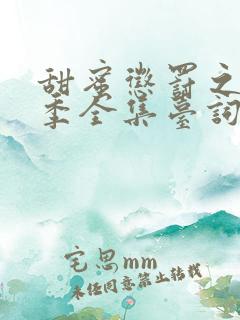 甜蜜懲罰之
季全集臺詞
宅思mm
未经同意禁止转载